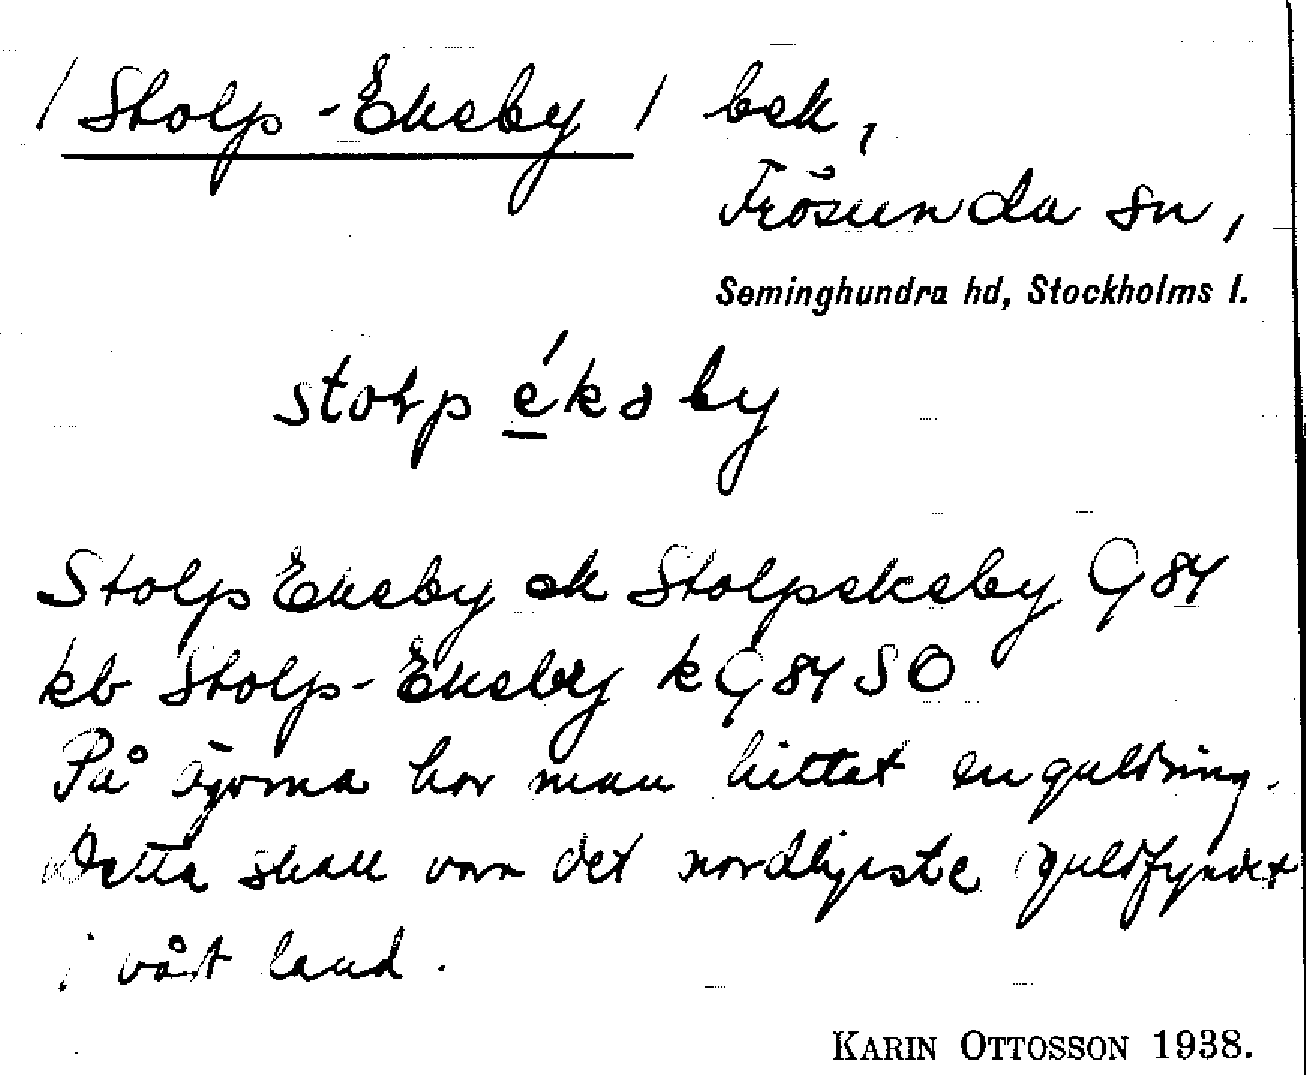 / Stolp-Ekeby / bsk,
Frösunda sn,
Seminghundra hd, Stockholms l.
stolp éksby
Stolp Ekeby ok Stolpekeby G 84
kb Stolp-Ekeby k G 84 SO
På ägorna har man hittat en guldring.
Detta skall vara det nordligaste guldfyndet
i vårt land.
KARIN OTTOSSON 1938.